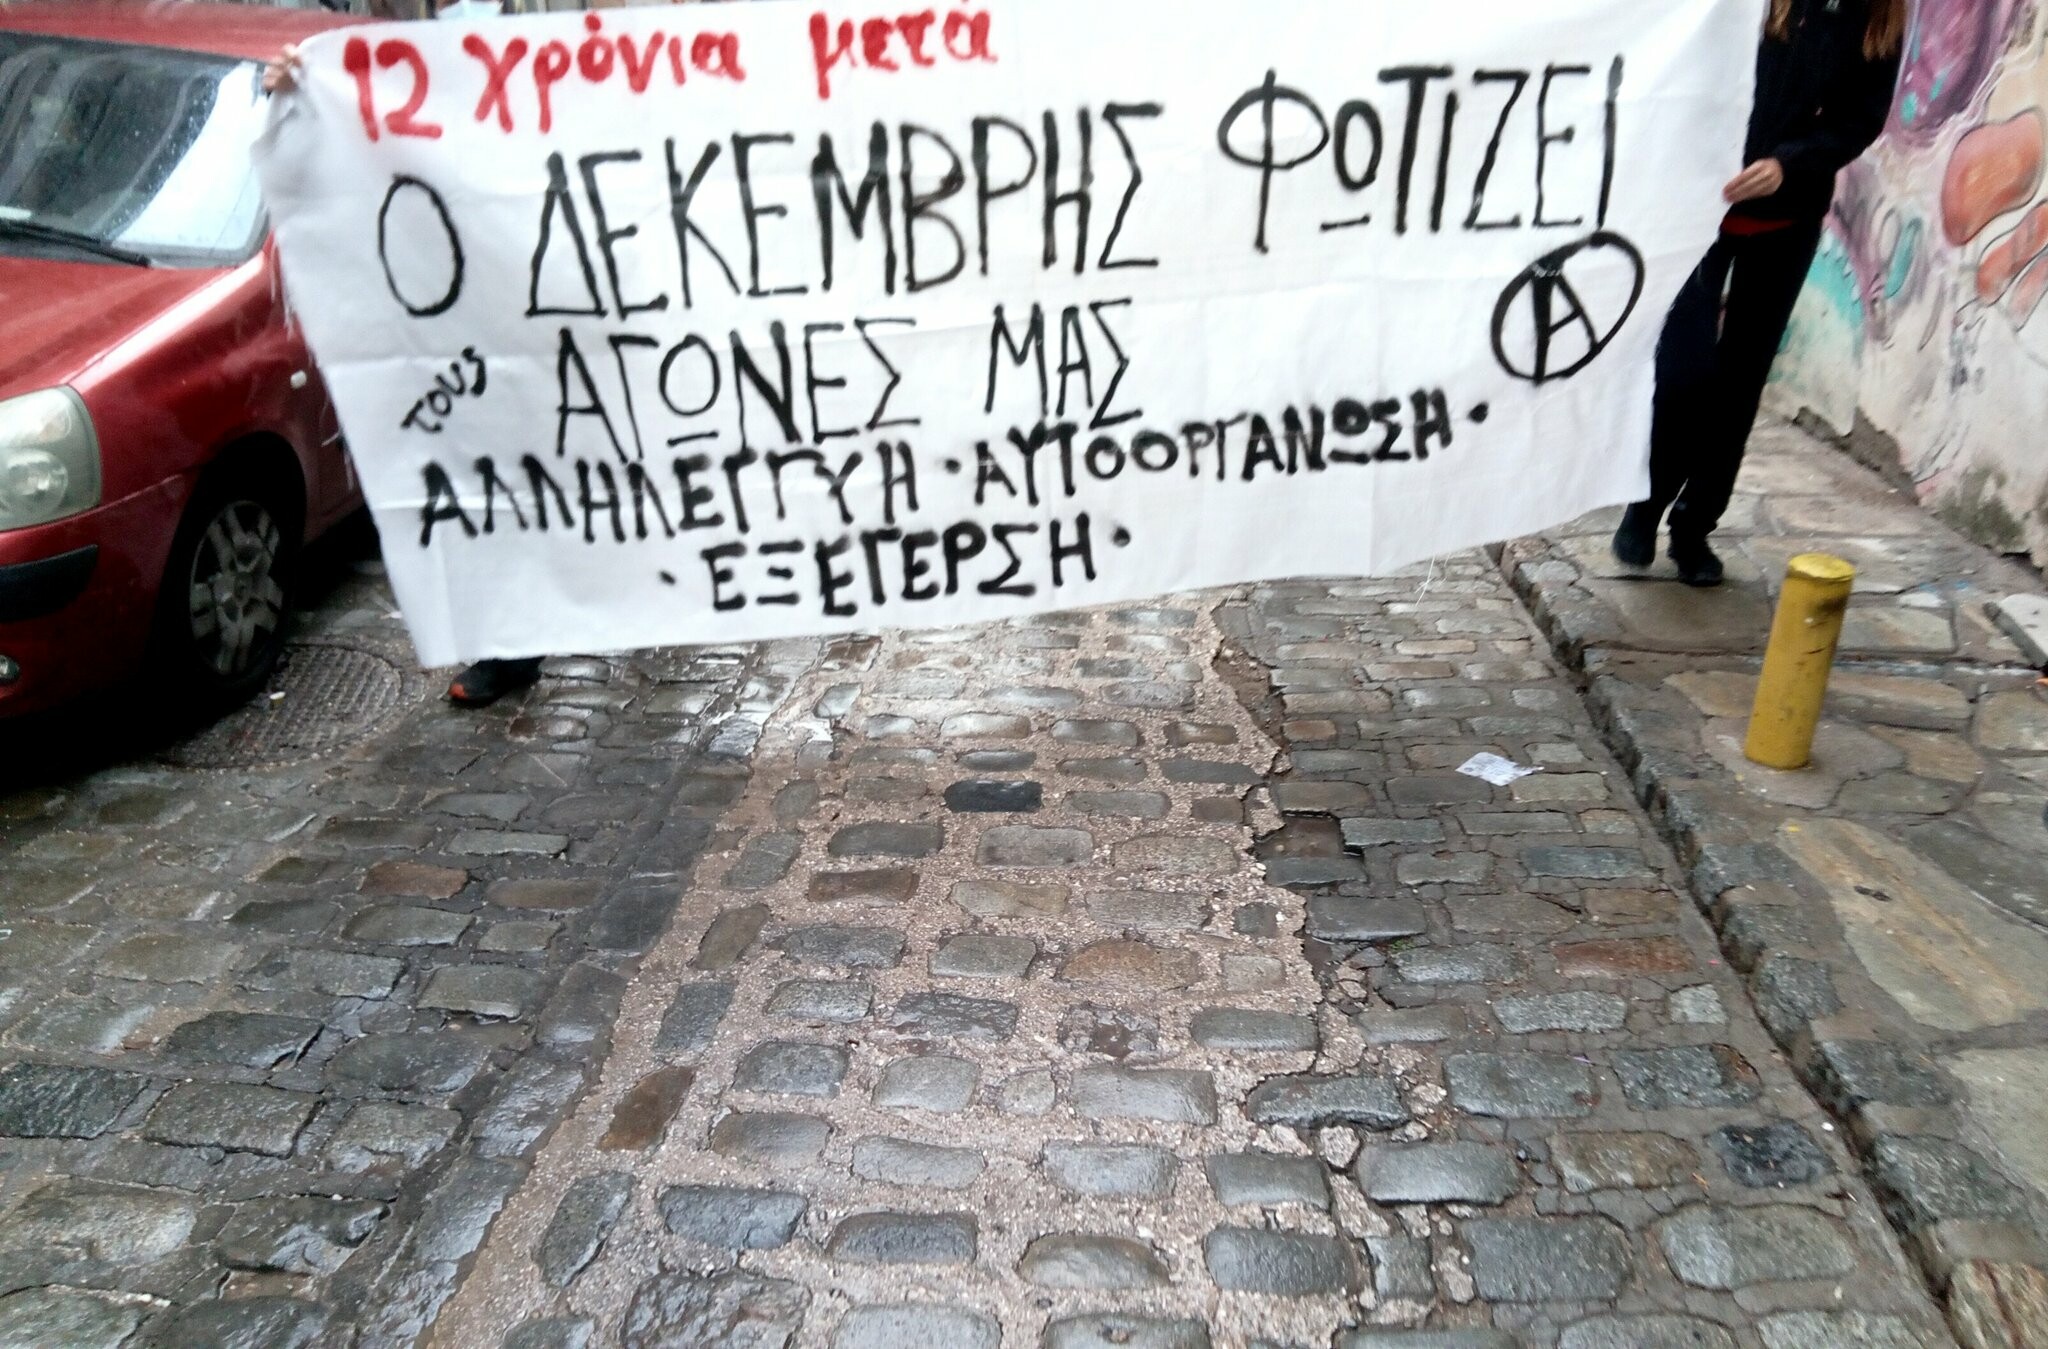 12 χρόνια μετά
Ο ΔΕΚΕΜΒΡΗΣ ΦΩΤΙΖΕΙ
τους ΑΓΩΝΕΣ ΜΑΣ Α
ΑΛΛΗΛΕΓΓΥΗ · ΑΥΤΟΟΡΓΑΝΩΣΗ ·
· ΕΞΕΓΕΡΣΗ ·